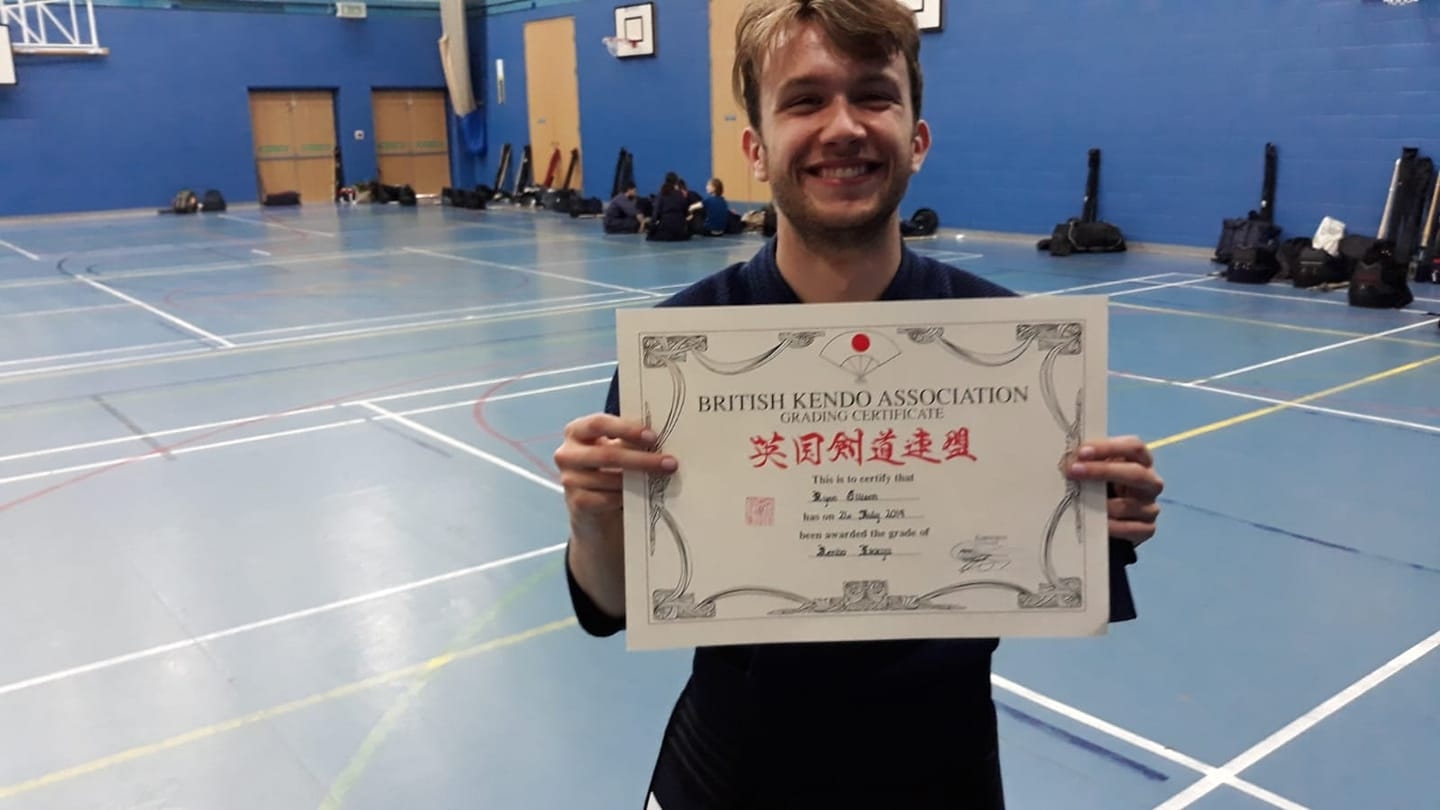 BRITISH KENDO ASSOCIATION
GRADING CERTIFICATE
英国劍道連盟
This is to certify that
Ryan
has on 21st July 2019
been awarded the grade of
Kendo